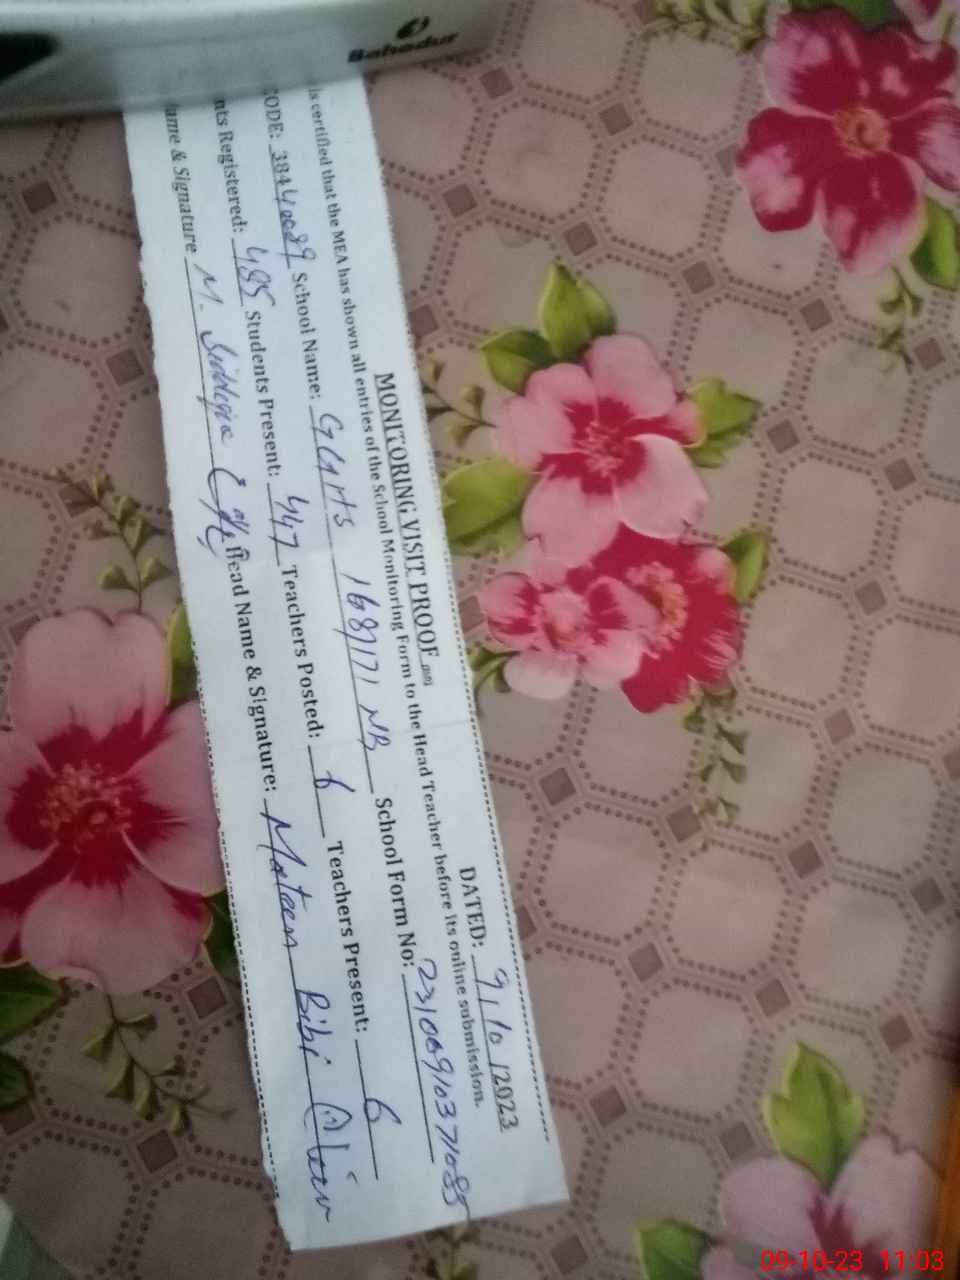 Bahadur
MONITORING VISIT PROOF DATED: 9/10/2023
is certified that the MEA has shown all entries of the School Monitoring Form to the Head Teacher before its online submission.
CODE: 38440089 School Name: GGHS 168/171 NB School Form No:
nts Registered: 485 Students Present: 447 Teachers Posted: 6 Teachers Present: 6
ame & Signature M. Head Name & Signature: Mateen Bibi
09-10-23 11:03